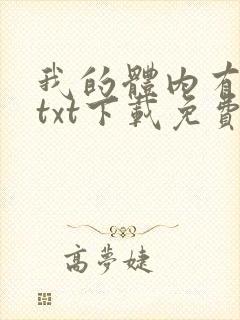 我的體內有
txt下載免費
高夢婕